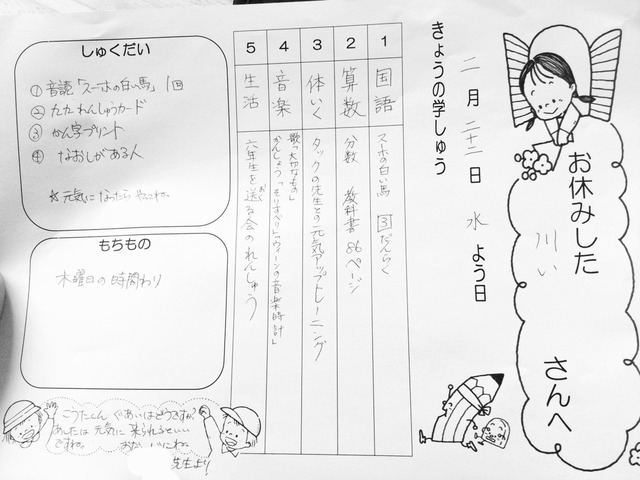 お休みした
川い
さんへ
きょうの学しゅう
二月二十二日 水よう日
1 国語 スーホの白い馬 3だんらく
2 算数 分数 教科書86ページ
3 体いく タックの先生との元気アップトレーニング
4 音楽 歌「大切なもの」
かんしょう「そりすべり」「ウィーンの音楽時計」
5 生活 六年生を送る会のれんしゅう
おく
しゅくだい
① 音読「スーホの白い馬」1回
② たたれんしゅうカード
③ かん字プリント
④ なおしがある人
☆元気になったらやってね。
もちもの
木曜日の時間わり
こうたくん ぐあいはどうですか?
あしたは元気に来られるといい
ですね。 おだいじにね。
先生より